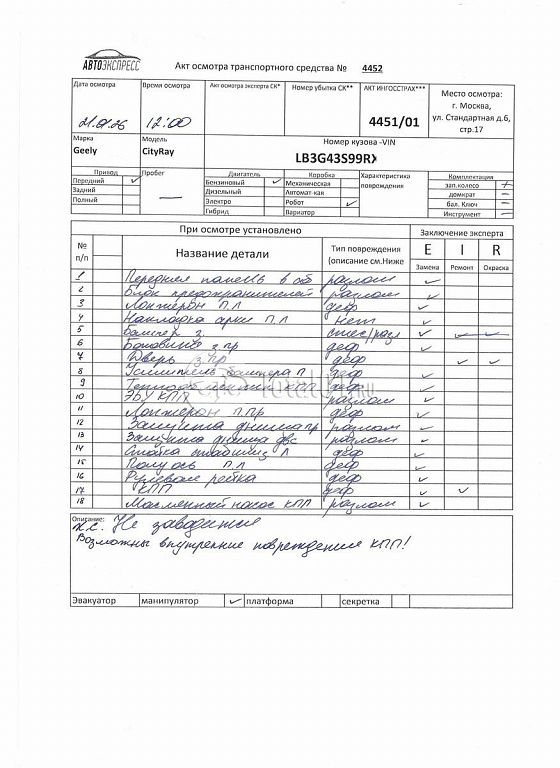 АВТОЭКСПРЕСС
Акт осмотра транспортного средства № 4452
Дата осмотра Время осмотра Акт осмотра эксперта СК* Номер убытка СК** АКТ ИНГОССТРАХ*** Место осмотра:
12:00 4451/01 г. Москва,
ул. Стандартная д.6,
стр.17
Марка Модель Номер кузова -VIN
Geely CityRay LB3G43S99RX
Привод Пробег Двигатель Коробка Характеристика повреждения Комплектация
Передний ✓ Бензиновый ✓ Механическая зап.колесо +
Задний — Дизельный Автомат-кая домкрат –
Полный Электро Робот ✓ бал. Ключ –
Гибрид Вариатор Инструмент –
При осмотре установлено Заключение эксперта
№ п/п Название детали Тип повреждения (описание см.Ниже E I R
Замена Ремонт Окраска
1 Передняя панель в сб разлом ✓
2 Блок предохранителей разлом ✓
3 Лонжерон П.Л деф ✓
4 Накладка арки П.Л Нет ✓
5 Бампер з. ✓ – –
6 Боковина з.пр деф ✓
7 Дверь з.пр деф ✓ ✓
8 Усилитель бампера П деф ✓
9 КПП деф ✓
10 ЭБУ КПП разлом ✓
11 Лонжерон П.Пр деф ✓
12 Защита днища пр разлом ✓
13 Защита днища двс разлом ✓
14 Стойка стабилиз Л деф ✓
15 Полуось П.Л деф ✓
16 Рулевая рейка деф ✓
17 КПП деф ✓
18 Масленный насос КПП разлом ✓
Описание: Не заводится
Возможны внутренние повреждения КПП!
Эвакуатор манипулятор ✓ платформа секретка